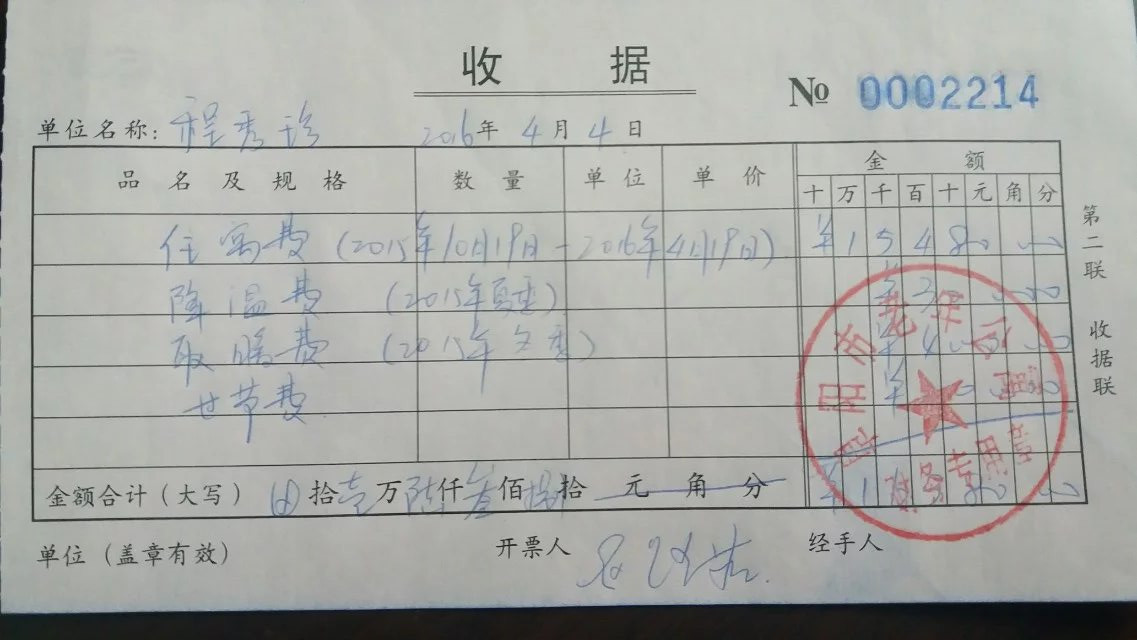 收 据
№ 0002214
单位名称: 程秀珍 2016年 4月 4日
品名及规格 数量 单位 单价 金额
十 万 千 百 十 元 角 分
住寓费 (2015年10月19日-2016年4月19日) ¥1548000
降温费 (2015年夏季)
取暖费 (2015年冬季)
廿节费
金额合计（大写） 拾 壹 万 陆 仟 叁 佰 捌 拾 元 角 分
单位（盖章有效） 开票人 经手人
第二联 收据联
财务专用章